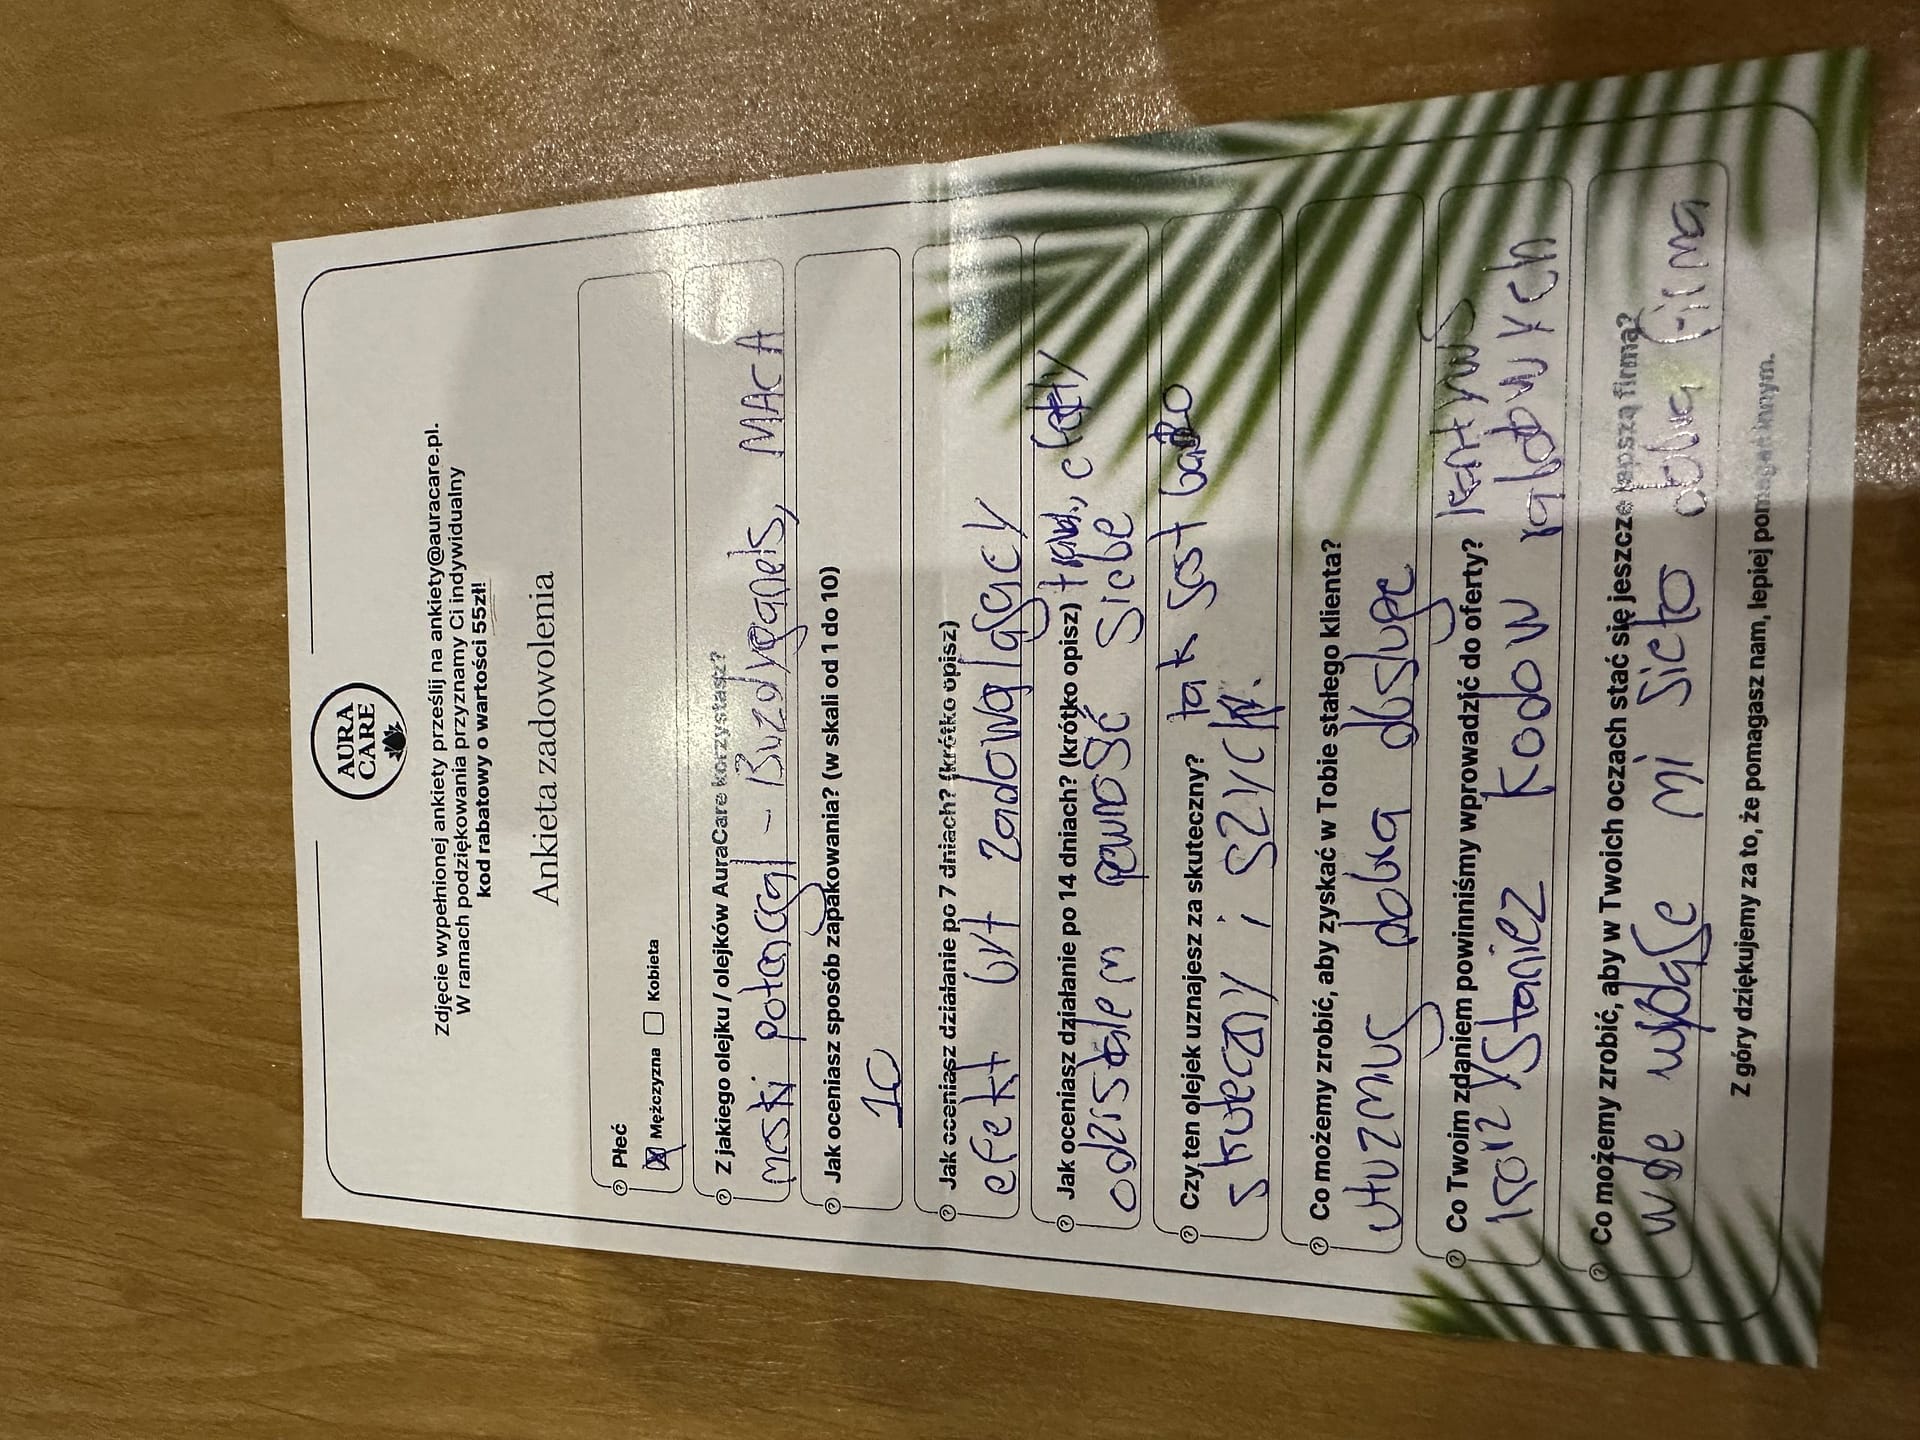 AURA
CARE
Zdjęcie wypełnionej ankiety prześlij na ankiety@auracare.pl.
W ramach podziękowania przyznamy Ci indywidualny
kod rabatowy o wartości 55zł!
Ankieta zadowolenia
Płeć
Mężczyzna Kobieta
Z jakiego olejku / olejków AuraCare korzystasz?
meski potencjal - Buzdyganek, MACA
Jak oceniasz sposób zapakowania? (w skali od 1 do 10)
10
Jak oceniasz działanie po 7 dniach? (krótko opisz)
efekt był zadowalający
Jak oceniasz działanie po 14 dniach? (krótko opisz)
pewność siebie
Czy ten olejek uznajesz za skuteczny? tak jest bardzo
skuteczny i
Co możemy zrobić, aby zyskać w Tobie stałego klienta?
dobra obsługe
Co Twoim zdaniem powinniśmy wprowadzić do oferty?
kodow rabatowych
Co możemy zrobić, aby w Twoich oczach stać się jeszcze lepszą firmą?
wydaje mi sie to dobra firma
Z góry dziękujemy za to, że pomagasz nam, lepiej pomagać innym.